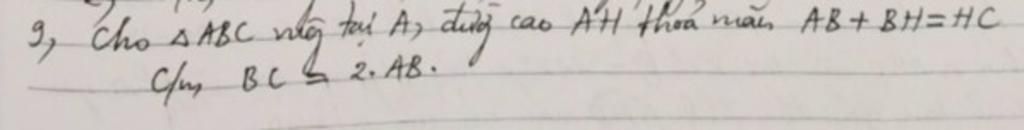 9, Cho △ABC vuông tại A, đường cao AH thoả mãn AB + BH = HC
C/m BC = 2.AB.